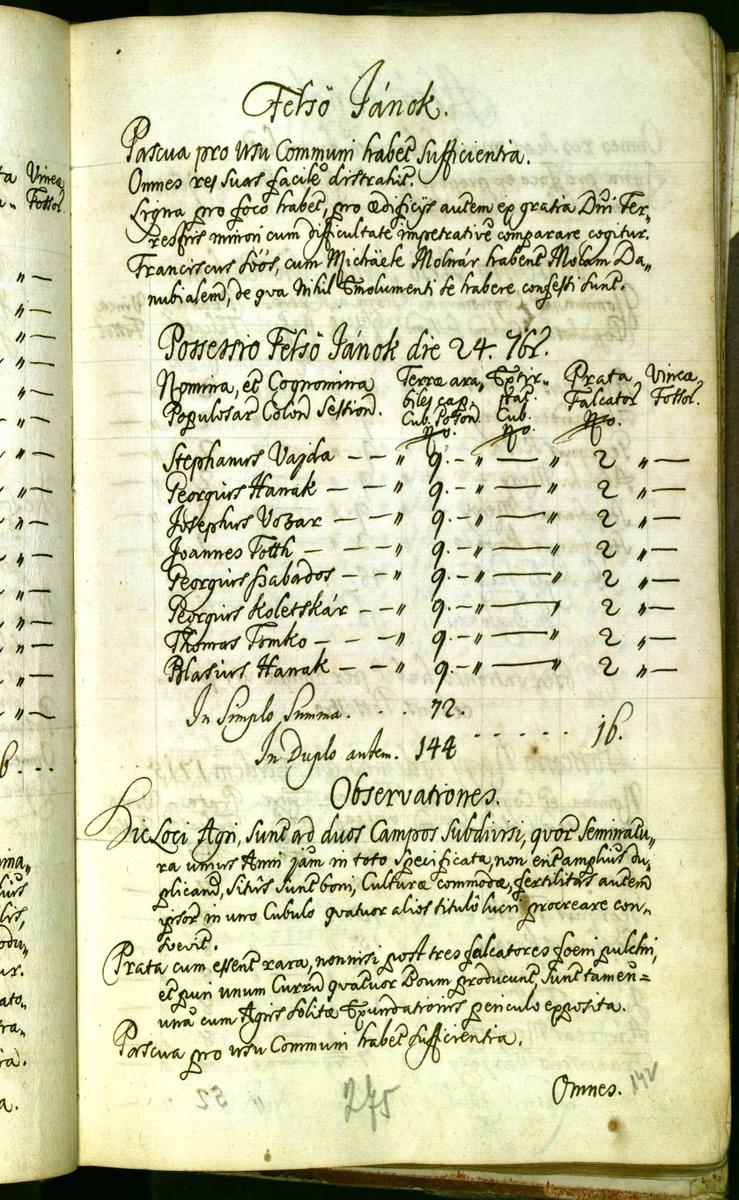 Felsö Jánok.
Pascua pro usu Communi habet sufficientia.
Omnes res suas facile distrahit.
Ligna pro foco habet, pro ædificijs autem ex gratia Dñi Ter„
restris minori cum difficultate impetrativè comparare cogitur.
Franciscus Söös, cum Michäele Molnár habent Molam Da„
nubialem, de qva Nihil Emolumenti se habere confessi sunt.
Possessio Felsö Jánok die 24. 7br.
Nomina, et Cognomina
Populosar Colon Session.
Terræ ara„
biles cap.
Cub. Poson.
Nro.
Extir„
pat.
Cub.
Nro.
Prata
Falcator
Nro.
Vineæ
Fossor.
Stephanus Vajda — — „ 9. — „ — „ 2 „ —
Georgius Hanak — — „ 9. — „ — „ 2 „ —
Josephus Vozar — — „ 9. — „ — „ 2 „ —
Joannes Totth — — — „ 9. — „ — „ 2 „ —
Georgius Szabados — — „ 9. — „ — „ 2 „ —
Georgius Koletskár — — „ 9. — „ — „ 2 „ —
Thomas Tomko — — — „ 9. — „ — „ 2 „ —
Blasius Hanak — — „ 9. — „ — „ 2 „ —
In Simplo Summa. . . . 72. . . . . . . 16.
In Duplo autem. 144
Observationes.
Hic Loci Agri, sunt ad duos Campos Subdivisi, quor Seminatu„
ra unius Anni jam in toto specificata, non erit amplius du„
plicand, Sitûs sunt boni, Culturæ commodæ, fertilitas autem
ipsor in uno Cubulo quatuor alios titulo lucri procreare con„
svevit.
Prata cum essent rara, nonnisi post tres falcatores foeni pulchri,
et puri unum Currũ quatuor Boum producunt, sunt tamen=
unà cum Agris solitæ Exundationis periculo exposita.
Pascua pro usu Communi habet sufficientia.
Omnes.
142
275